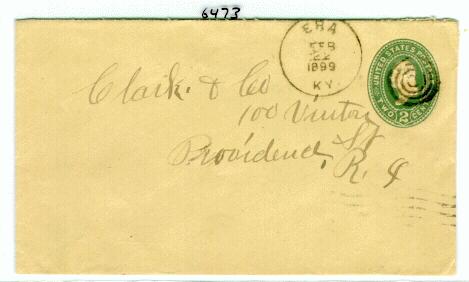 6473
ERA
FEB
22
1899
KY.
UNITED STATES
TWO 2 CENTS
Clark. & Co
100 Vinton
St
Providence,
R. I